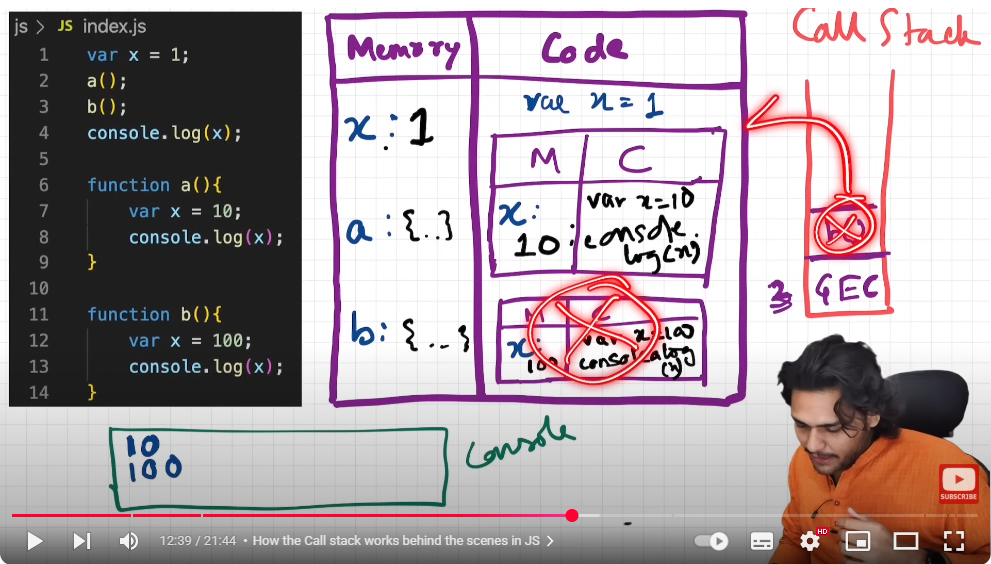 js > JS index.js
1 var x = 1;
2 a();
3 b();
4 console.log(x);
5
6 function a(){
7 var x = 10;
8 console.log(x);
9 }
10
11 function b(){
12 var x = 100;
13 console.log(x);
14 }
Memory
Code
x : 1
a : {..}
b : {...}
var x = 1
M
C
x:
10
var x=10
console.
log(x)
M
C
x:
100
var x=100
console.log
(x)
Call Stack
GEC
10
100
Console
SUBSCRIBE
12:39 / 21:44 • How the Call stack works behind the scenes in JS >
HD